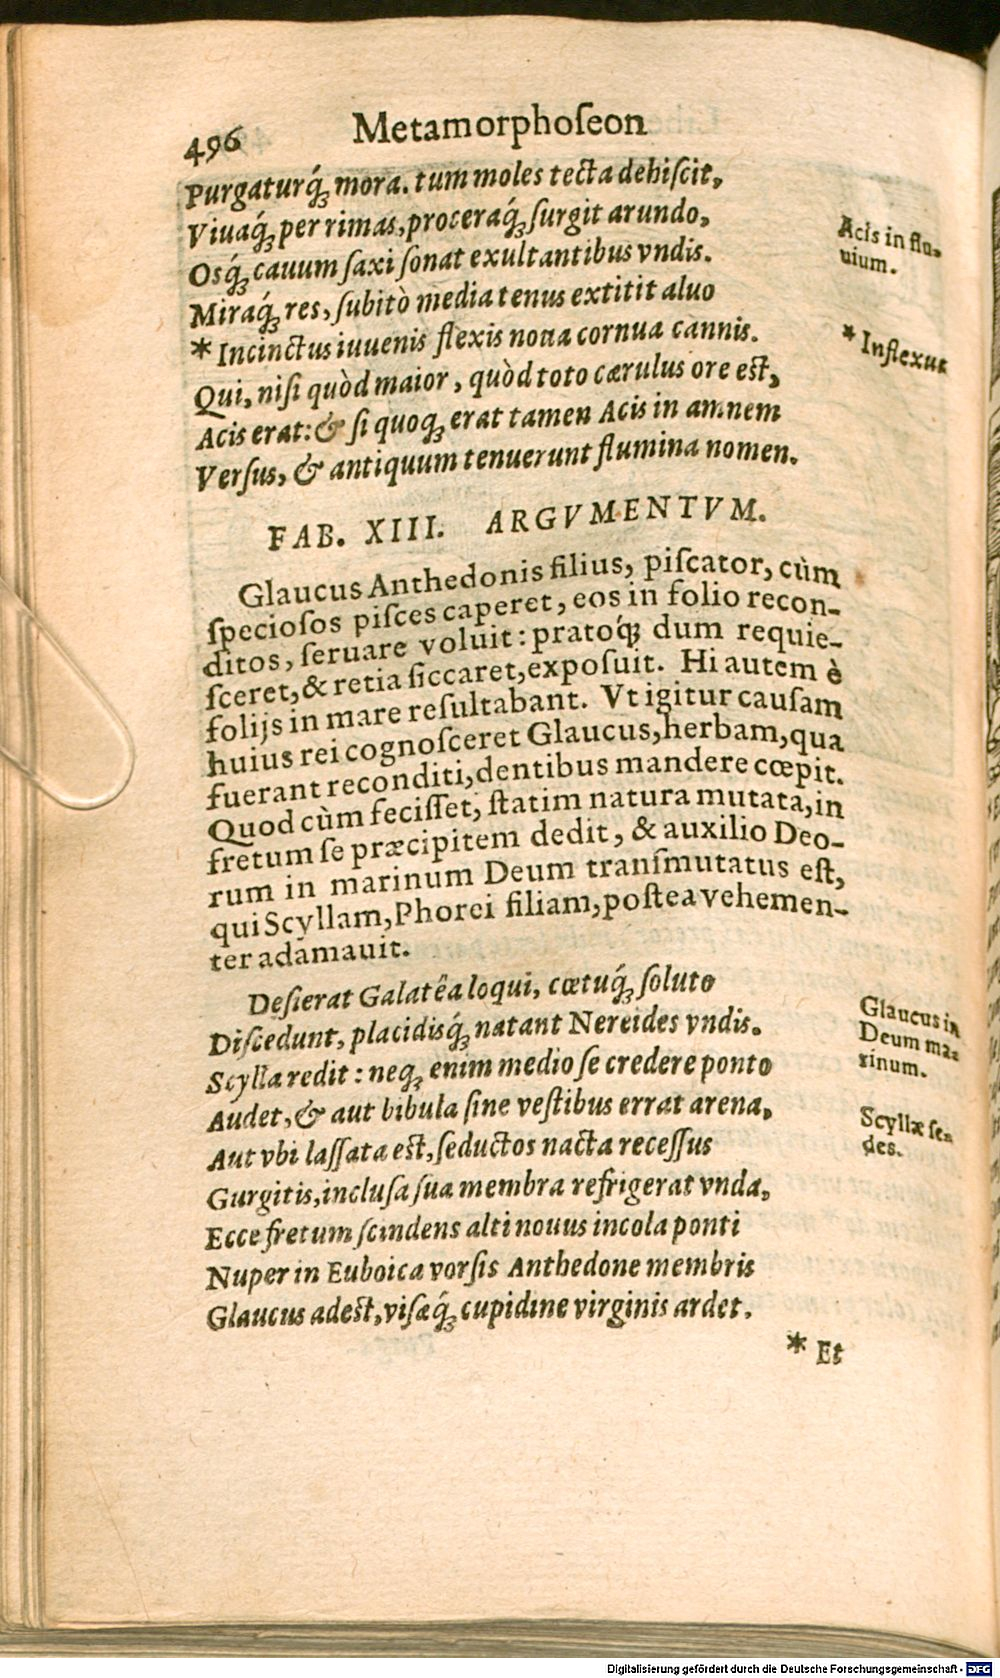 496 Metamorphoſeon
Purgaturq́; mora. tum moles tecta dehiſcit,
Viuaq́; per rimas, proceraq́; ſurgit arundo,
Osq́; cauum ſaxi ſonat exultantibus vndis.
Acis in flu-
uium.
Miraq́; res, ſubitò media tenus extitit aluo
* Incinctus iuuenis flexis noua cornua cannis.
* Inflexus
Qui, niſi quòd maior, quòd toto cærulus ore est,
Acis erat: & ſi quoq; erat tamen Acis in amnem
Verſus, & antiquum tenuerunt flumina nomen.
FAB. XIII. ARGVMENTVM.
Glaucus Anthedonis filius, piſcator, cùm
ſpecioſos piſces caperet, eos in folio recon-
ditos, ſeruare voluit: pratoq́; dum requie-
ſceret, & retia ſiccaret, expoſuit. Hi autem è
folijs in mare reſultabant. Vt igitur cauſam
huius rei cognoſceret Glaucus, herbam, qua
fuerant reconditi, dentibus mandere cœpit.
Quod cùm feciſſet, ſtatim natura mutata, in
fretum ſe præcipitem dedit, & auxilio Deo-
rum in marinum Deum tranſmutatus eſt,
qui Scyllam, Phorci filiam, poſtea vehemen-
ter adamauit.
Deſierat Galatêa loqui, cœtuq́; ſoluto
Diſcedunt, placidisq́; natant Nereides vndis.
Glaucus in
Deum ma-
rinum.
Scylla redit: neq; enim medio ſe credere ponto
Audet, & aut bibula ſine veſtibus errat arena,
Scyllæ ſe-
des.
Aut vbi laſſata est, ſeductos nacta receſſus
Gurgitis, incluſa ſua membra refrigerat vnda,
Ecce fretum ſcindens alti nouus incola ponti
Nuper in Euboica vorſis Anthedone membris
Glaucus adest, viſæq́; cupidine virginis ardet.
* Et
Digitalisierung gefördert durch die Deutsche Forschungsgemeinschaft - DFG